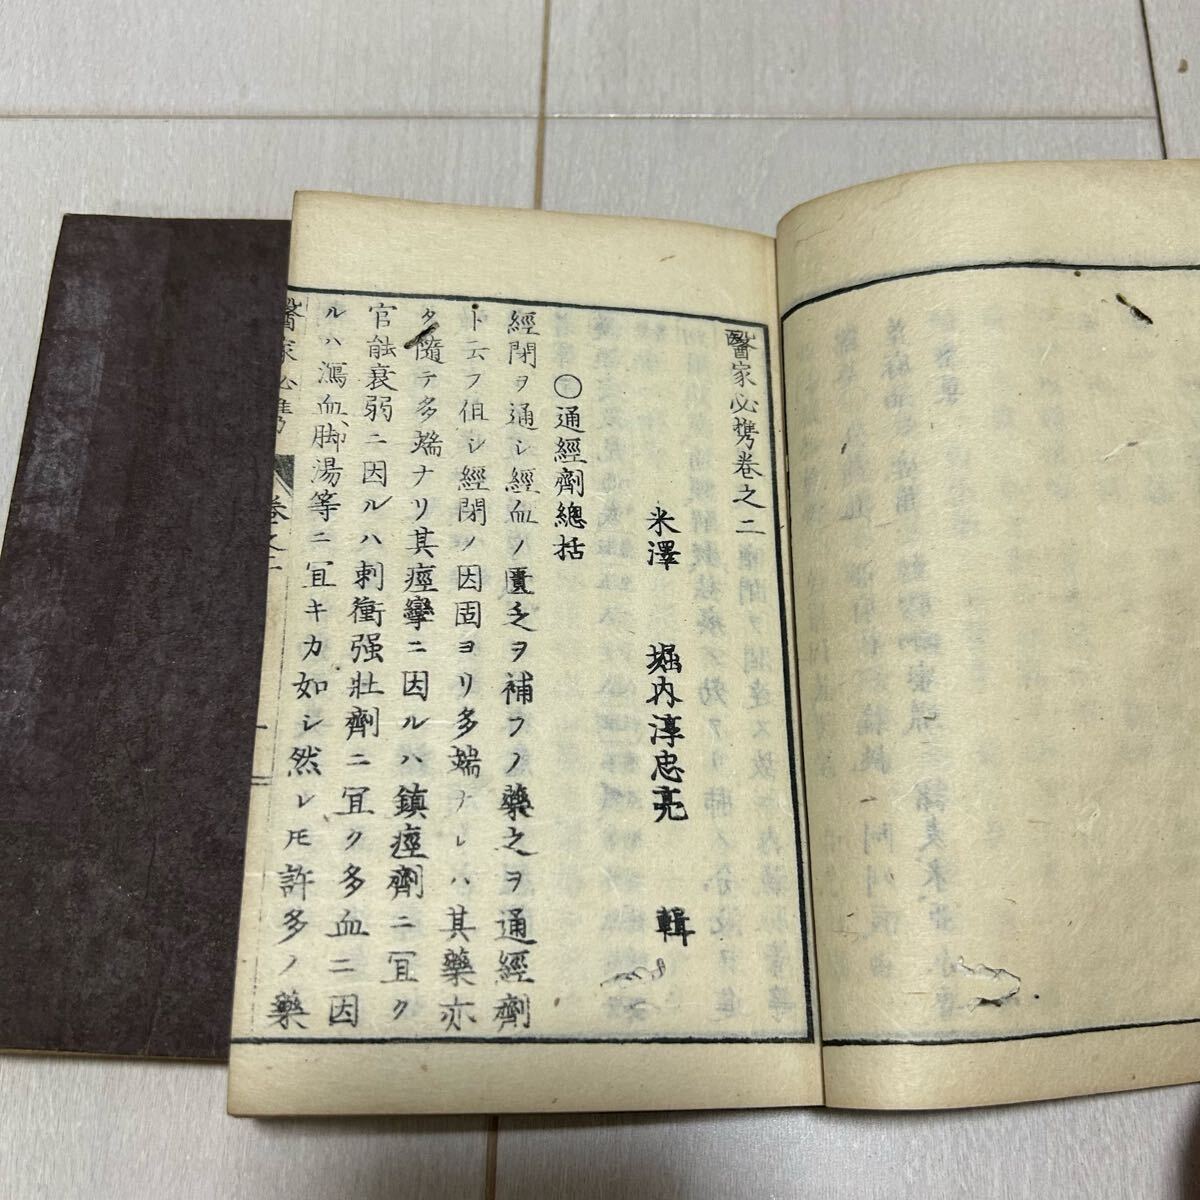 醫家必携卷之二
米澤 堀内淳忠亮 輯
○通經劑總括
經閉ヲ通シ經血ノ匱乏ヲ補フノ藥之ヲ通經劑
ト云フ但シ經閉ノ因固ヨリ多端ナレハ其藥亦
タ隨テ多端ナリ其痙攣ニ因ルハ鎮痙劑ニ冝ク
官能衰弱ニ因ルハ刺衝强壯劑ニ冝ク多血ニ因
ルハ瀉血脚湯等ニ冝キカ如シ然レ𪜈許多ノ藥
醫家必携 卷之二 一